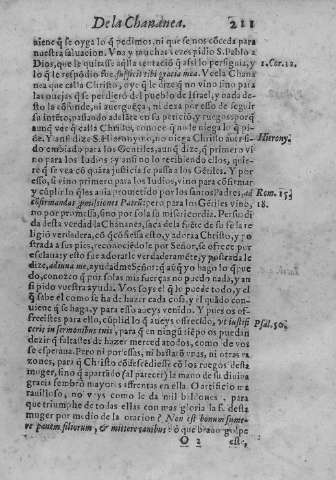 De la Chananea. 211
uiene q̃ se oyga lo q̃ pedimos, ni que se nos cõceda para
nuestra saluacion. Vna y muchas vezes pidio S. Pablo a
Dios, que le quitasse aq̃lla tentaciõ q̃ assi lo perseguia, y
lo q̃ le respõdio fue, sufficit tibi gratia mea. Vee la Chana
nea que calla Christo, oye q̃ le dize q̃ no vino sino para
las ouejas que se perdierõ del pueblo de Israel, y cada de
sto la cõfunde, ni auerguẽça, ni dexa por esso de seguir
su intẽto, passando adelãte en su peticiõ, y ruegos: porq̃
aunq̃ vee q̃ calla Christo, conoce q̃ no le niega lo q̃ pi-
de. Y ansi dize S. Hieronymo, no niega Christo auer si-
do embiado para los Gentiles, aunq̃ dize, q̃ primero vi
no para los Iudios: y ansi no lo recibiendo ellos, quie-
re q̃ se vea cõ quãta justicia se passa a los Gẽtiles. Y por
esso, si vino primero para los Iudios, vino para cõfirmar
y cũplir lo q̃ les auia prometido por los santos Padres, ad
confirmandas promissiones Patrũ: pero para los Gẽtiles vino,
no por promessa, sino por sola su misericordia. Persuadi
da desta verdad la Chananea, saca de la fuẽte de su fe la re
ligiõ verdadera, cõ q̃ cõfiessa esto, y adora a Christo, y po
strada a sus pies, reconociẽdole por Señor, se ofrece por
esclaua: y esto fue adorarle verdaderamẽte, y postrada le
dize, adiuua me, ayudadme Señor: q̃ auq̃ yo hago lo que
do, conozco q̃ por solas mis fuerças no puedo nada, y an
si pido vuestra ayuda. Vos soys el q̃ lo puede todo, y el
q̃ sabe el como se ha de hazer cada cosa, y el quãdo con-
uiene q̃ se haga, y para esso aueys venido. Y pues os of-
frecistes para ello, cũplid lo q̃ aueys offrecido, vt iustifi
ceris in sermonibus tuis, para q̃ en ningũ tiẽpo os puedan
dezir q̃ faltastes de hazer merced a todos, como de vos
se esperaua. Pero ni por essas, ni bastarõ vnas, ni otras ra
zones, para q̃ Christo cõdescẽdiesse cõ los ruegos desta
muger, sino q̃ apartãdo (al parecer) la mano de su diuina
gracia sembrò mayores affrentas en ella. O artificio ma
rauilloso, no vrys como le da mil baldones, para
que triumphe de todas ellas con mas gloria la fe desta
muger por medio de la oracion? Non est bonum sume-
re panem filiorum, & mittere canibus: ò que brauo golpe
O 2 este,
2. Cor. 12.
Hierony.
Rom. 15.
18.
Psal. 50.